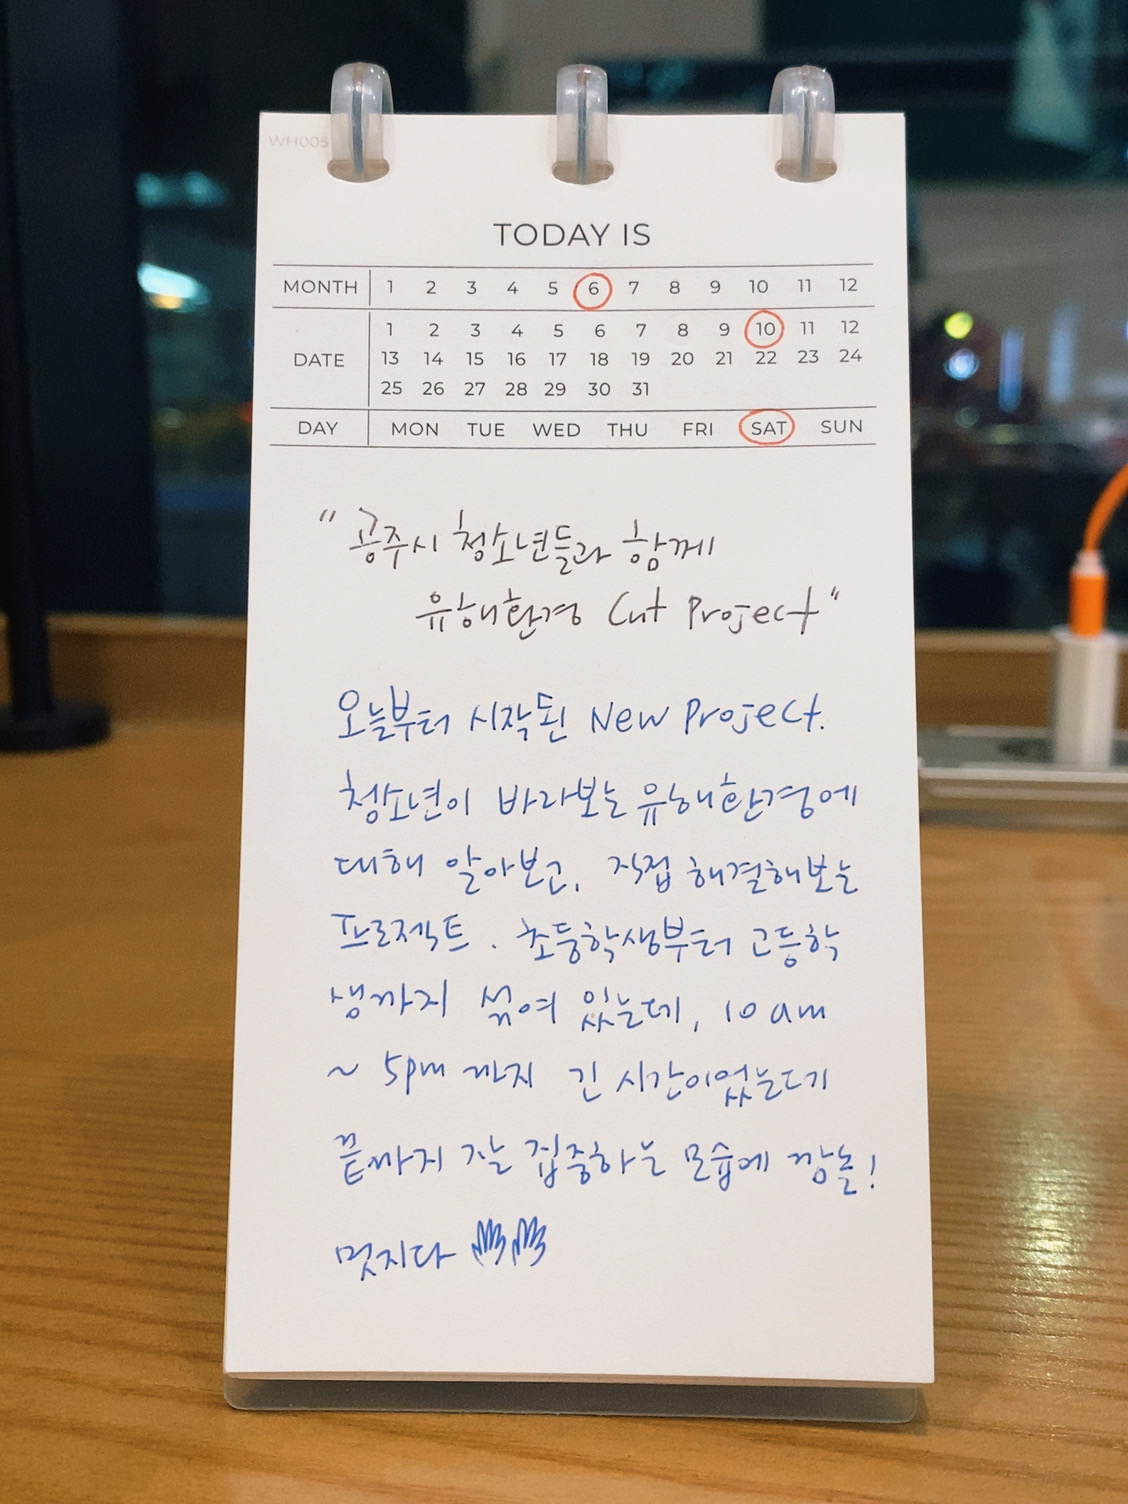 WH005
TODAY IS
MONTH 1 2 3 4 5 6 7 8 9 10 11 12
1 2 3 4 5 6 7 8 9 10 11 12
DATE 13 14 15 16 17 18 19 20 21 22 23 24
25 26 27 28 29 30 31
DAY MON TUE WED THU FRI SAT SUN
"공주시 청소년들과 함께
유해환경 Cut Project"
오늘부터 시작된 New Project.
청소년이 바라보는 유해환경에
대해 알아보고, 직접 해결해보는
프로젝트. 초등학생부터 고등학
생까지 섞여 있는데, 10am
~ 5pm까지 긴 시간이었는데
끝까지 잘 집중하는 모습에 깜놀!
멋지다